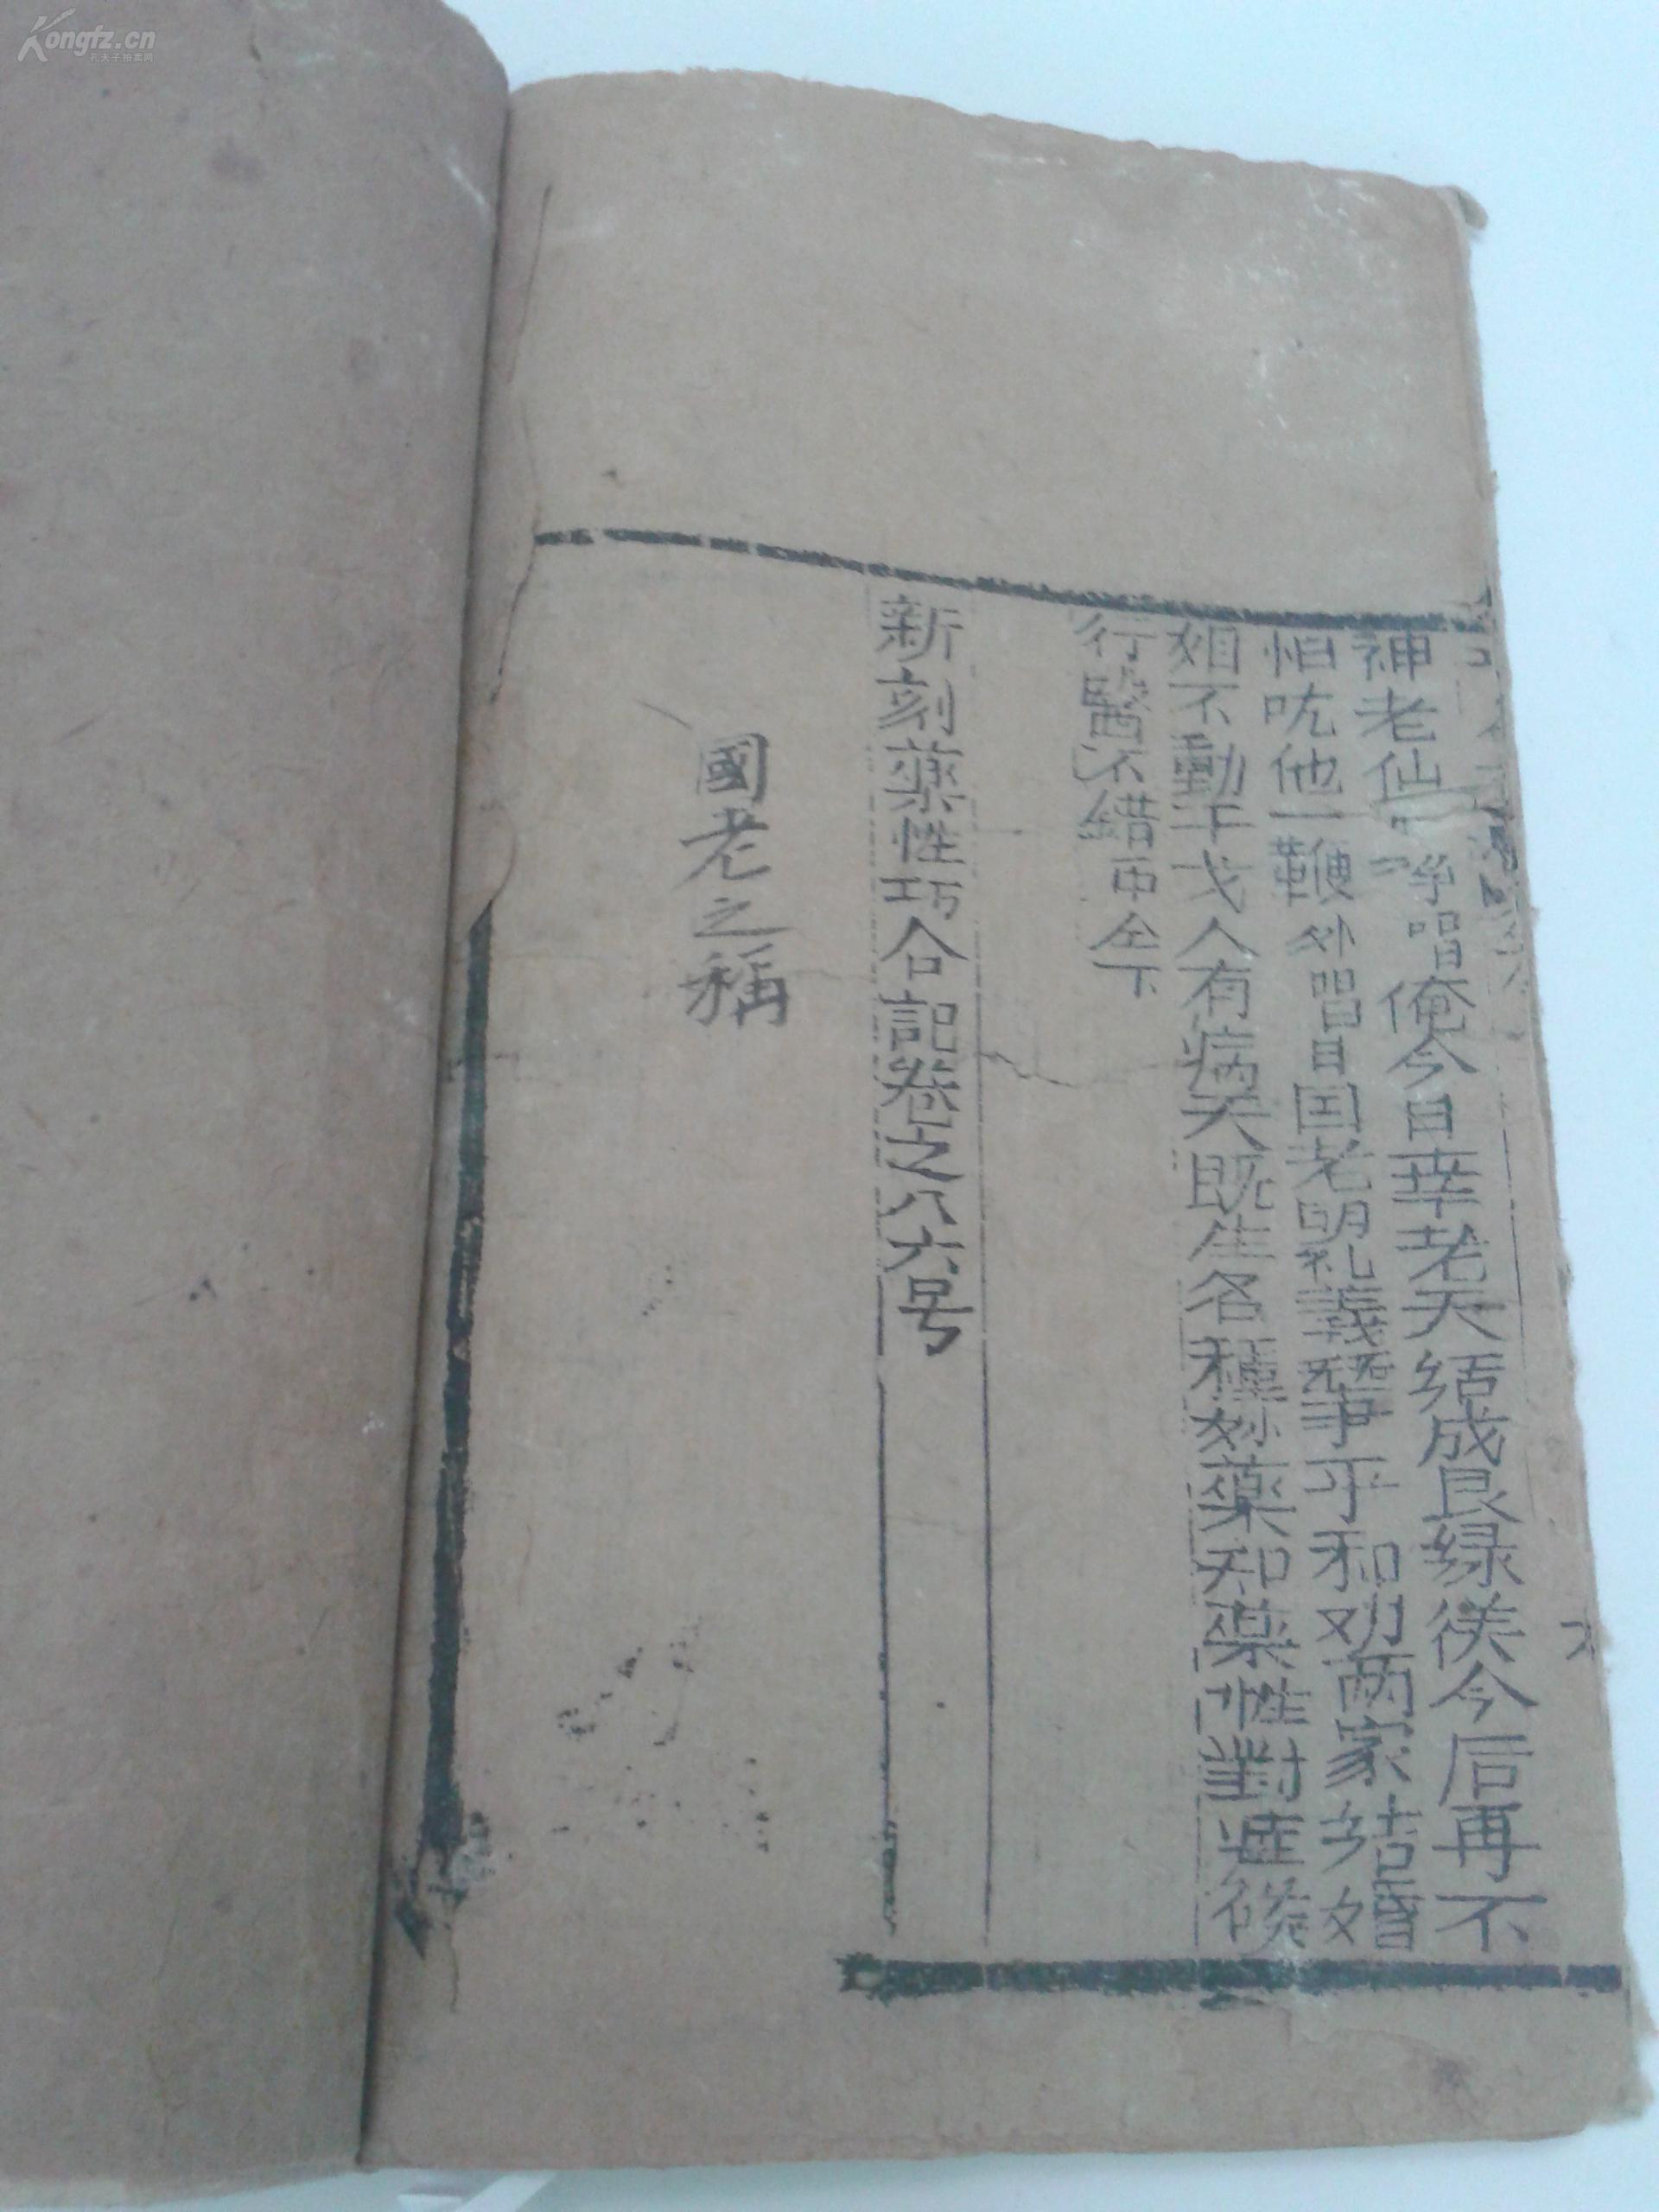 Kongfz.cn
孔夫子拍卖网
神老仙 净唱 俺今日幸老天结成良缘后再不
怕吮他一鞭 外唱 自国老明礼義琴事平和劝两家结婚
姻不動干戈人有病天既生各種妙薬知薬性對症
行醫不錯 同仝下
新刻薬性巧合記卷之八六号
國老之稱